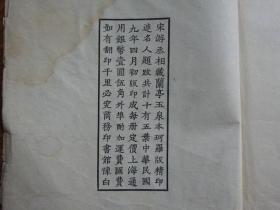 宋游丞相藏蘭亭玉泉本珂羅版精印
連名人題跋共計十有五葉中華民國
九年四月初版印成每冊定價上海通
用銀幣壹圓伍角外埠酌加運費匯費
如有翻印千里必究商務印書館謹白